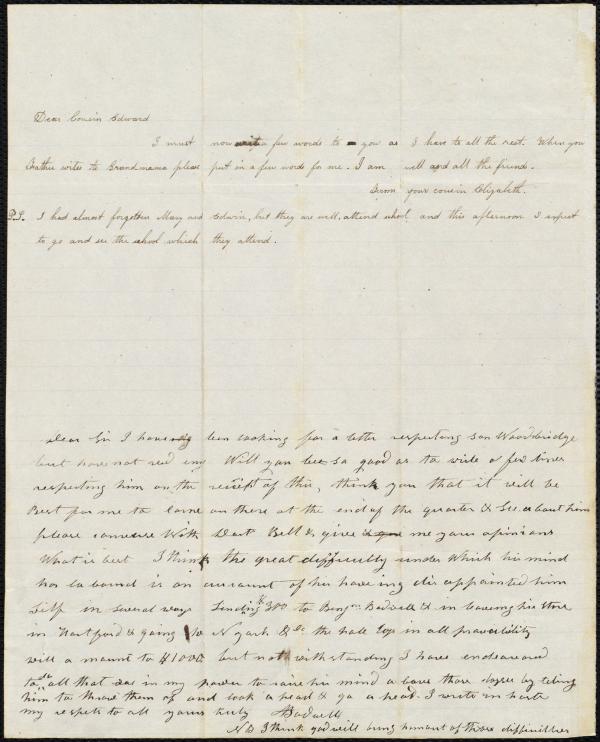 Dear Cousin Edward
I must now write a few words to you as I have to all the rest. When you
Father writes to Grandmama please put in a few words for me. I am well and all the friends.
From your cousin Elizabeth.
P.S. I had almost forgotten Mary and Edwin, but they are well, attend school and this afternoon I expect
to go and see the school which they attend.
Dear Sir I have been looking for a letter respecting son Woodbridge
but have not recd any Will you be so good as to write a few lines
respecting him on the receipt of this, think you that it will be
Best for me to Come on there at the end of the quarter & See about him
please converse With Doct Bell & give me your opinions
What is best I think the great difficulty under which his mind
has labound is on account of his haveing disappointed him
Self in several ways Sending $300 to Benjn & in leaving his store
in Hartford & going to N york &c the hall loss in all proverbility
will a mount to $1000 but not withstanding I have endeavored
to do all that was in my power to raise his mind a bove those by teling
him to throw them of and look a head & go a head. I write in haste
my respects to all yours truly
NB I think god will bring him out of those difficulties